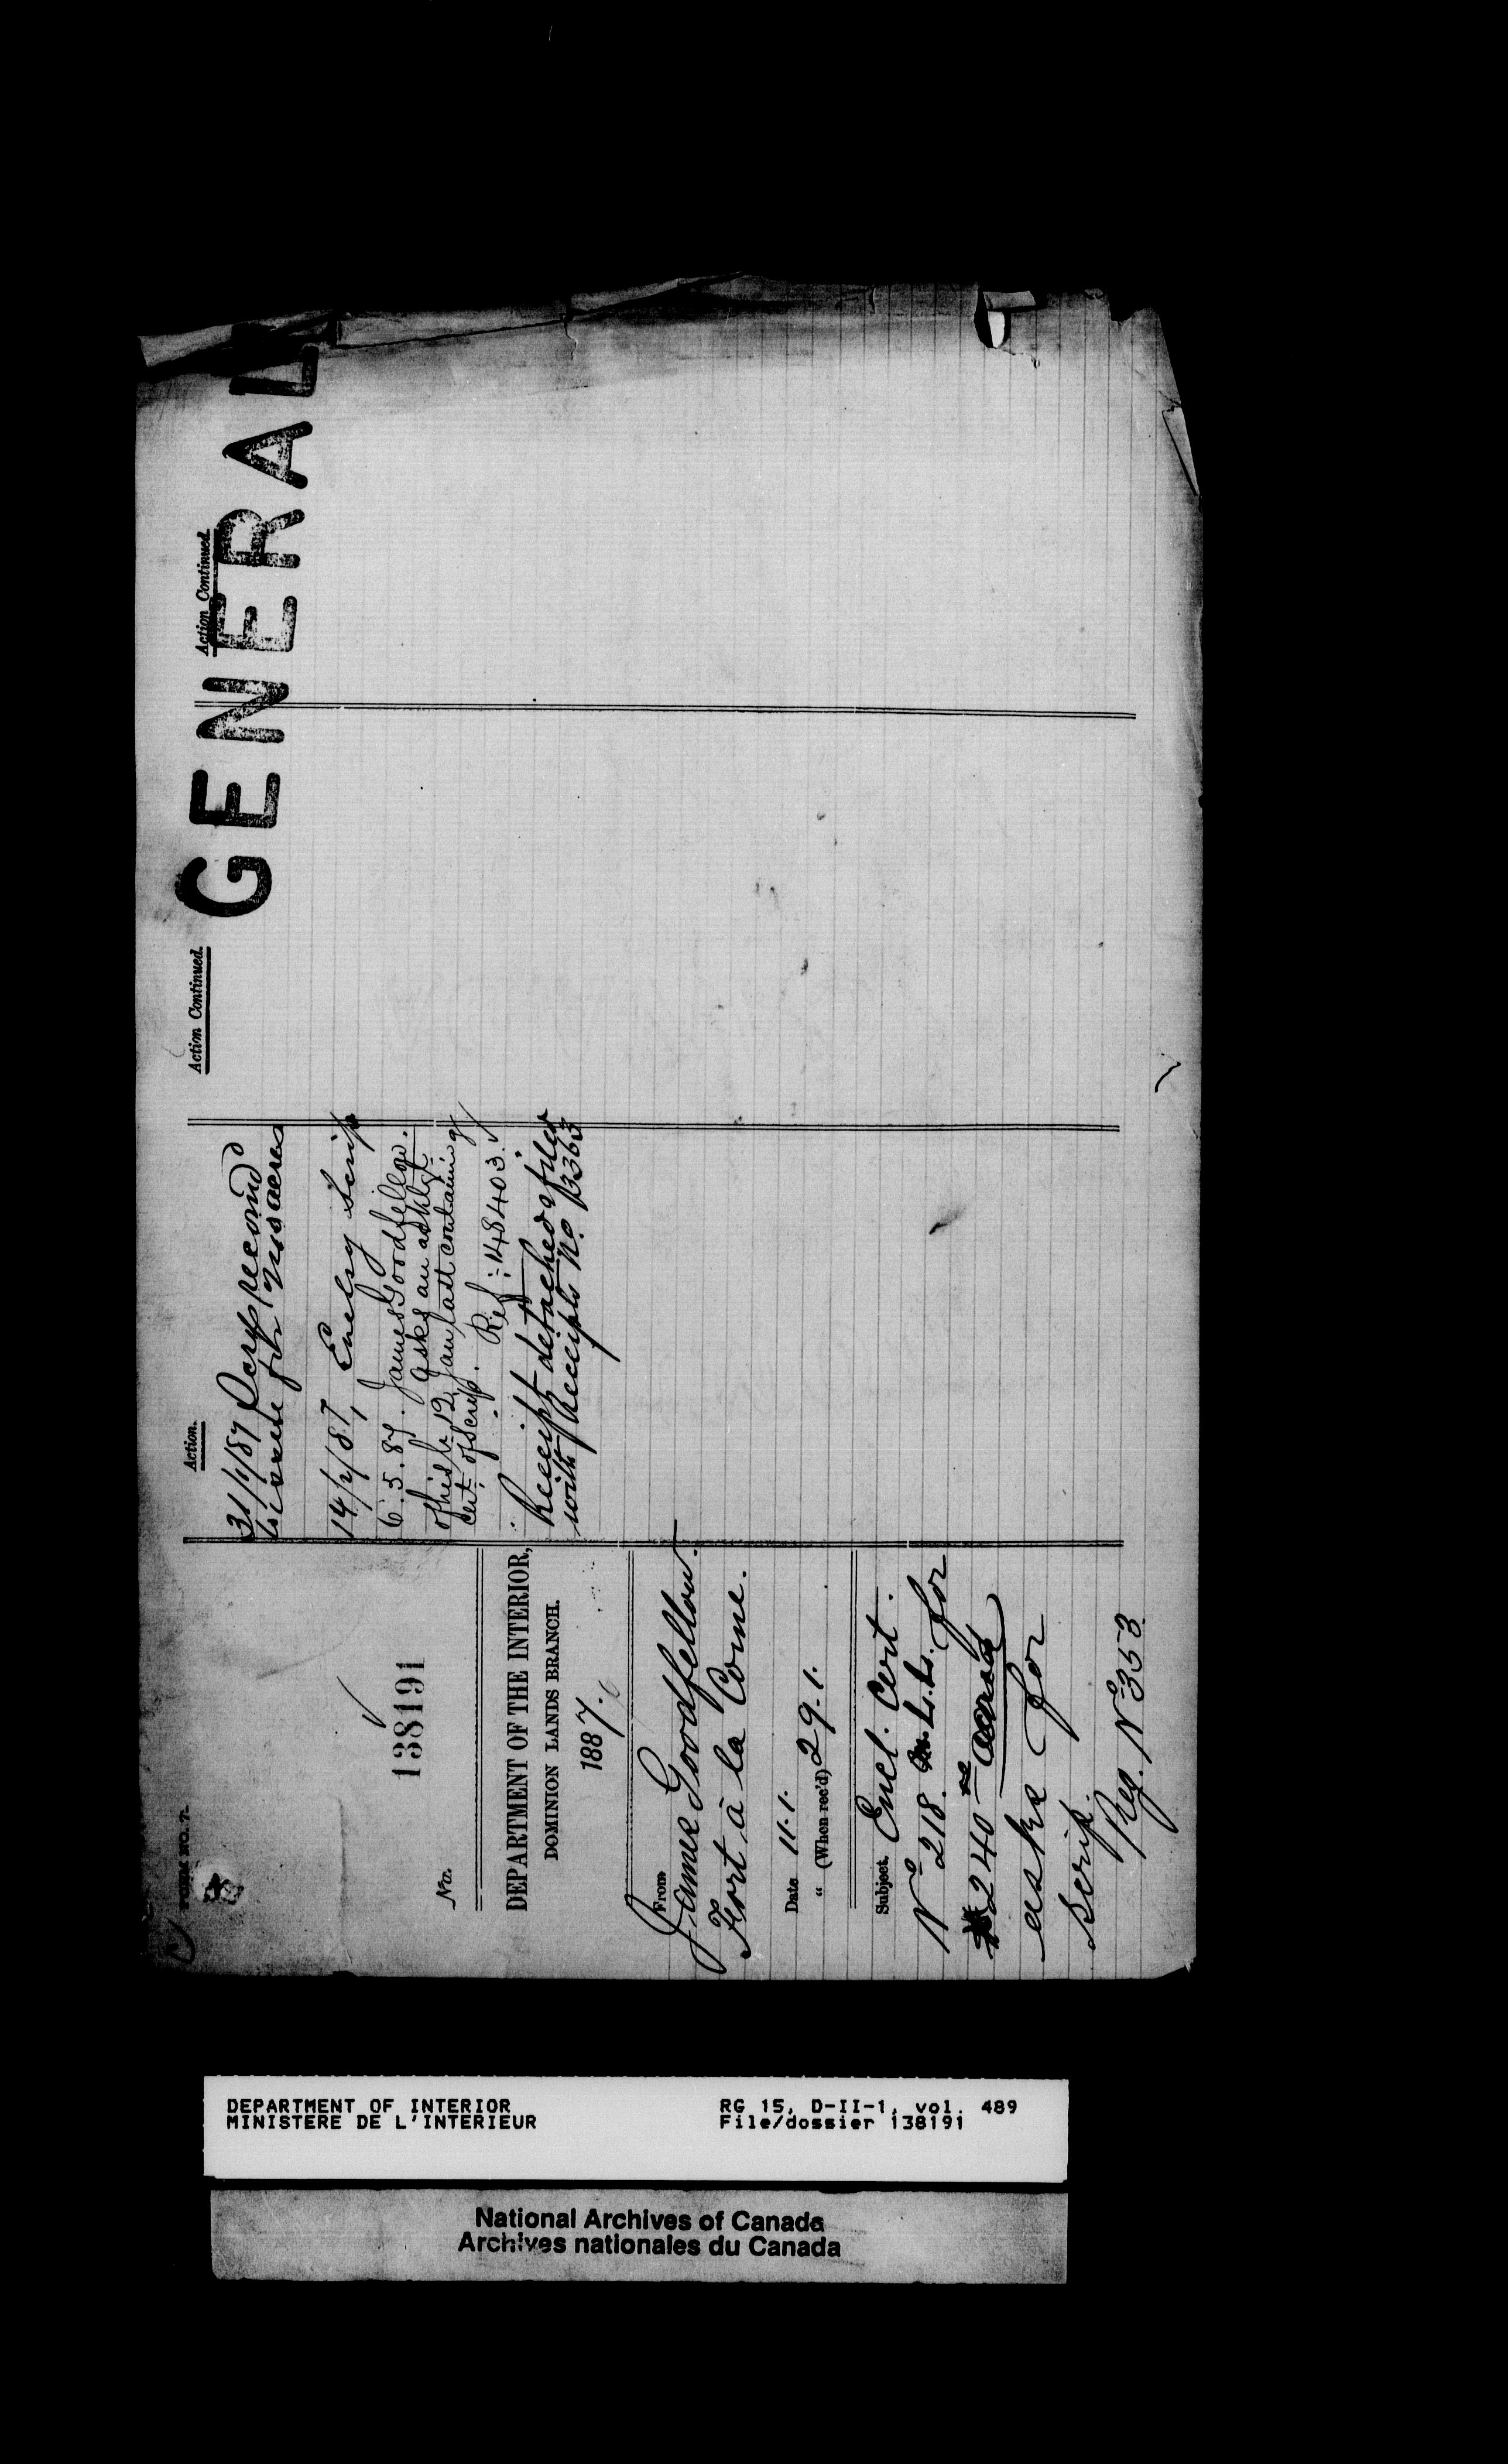 FORM NO. 7.
138191
No.
DEPARTMENT OF THE INTERIOR,
DOMINION LANDS BRANCH.
1887.
From
James Goodfellow.
Fort à la Corne.
Date 11.1.
" (When rec'd) 29.1.
Subject. Encl. Cert.
No 218. L.S. for
240 acres
asks for
Scrip.
Reg. No 353.
Action.
31/1/87 Scrip record
to issue for 240 acres
14/2/87, Enclsg Scrip
6.5.87. James Goodfellow.
asks an acklgt.
of his l. 12 Jan last containing
cert. of Scrip. Ref: 148403.
Receipt detached & filed
with Receipts No. 13363
Action Continued.
Action Continued.
GENERAL
DEPARTMENT OF INTERIOR
MINISTERE DE L'INTERIEUR
RG 15, D-II-1, vol. 489
File/dossier 138191
National Archives of Canada
Archives nationales du Canada